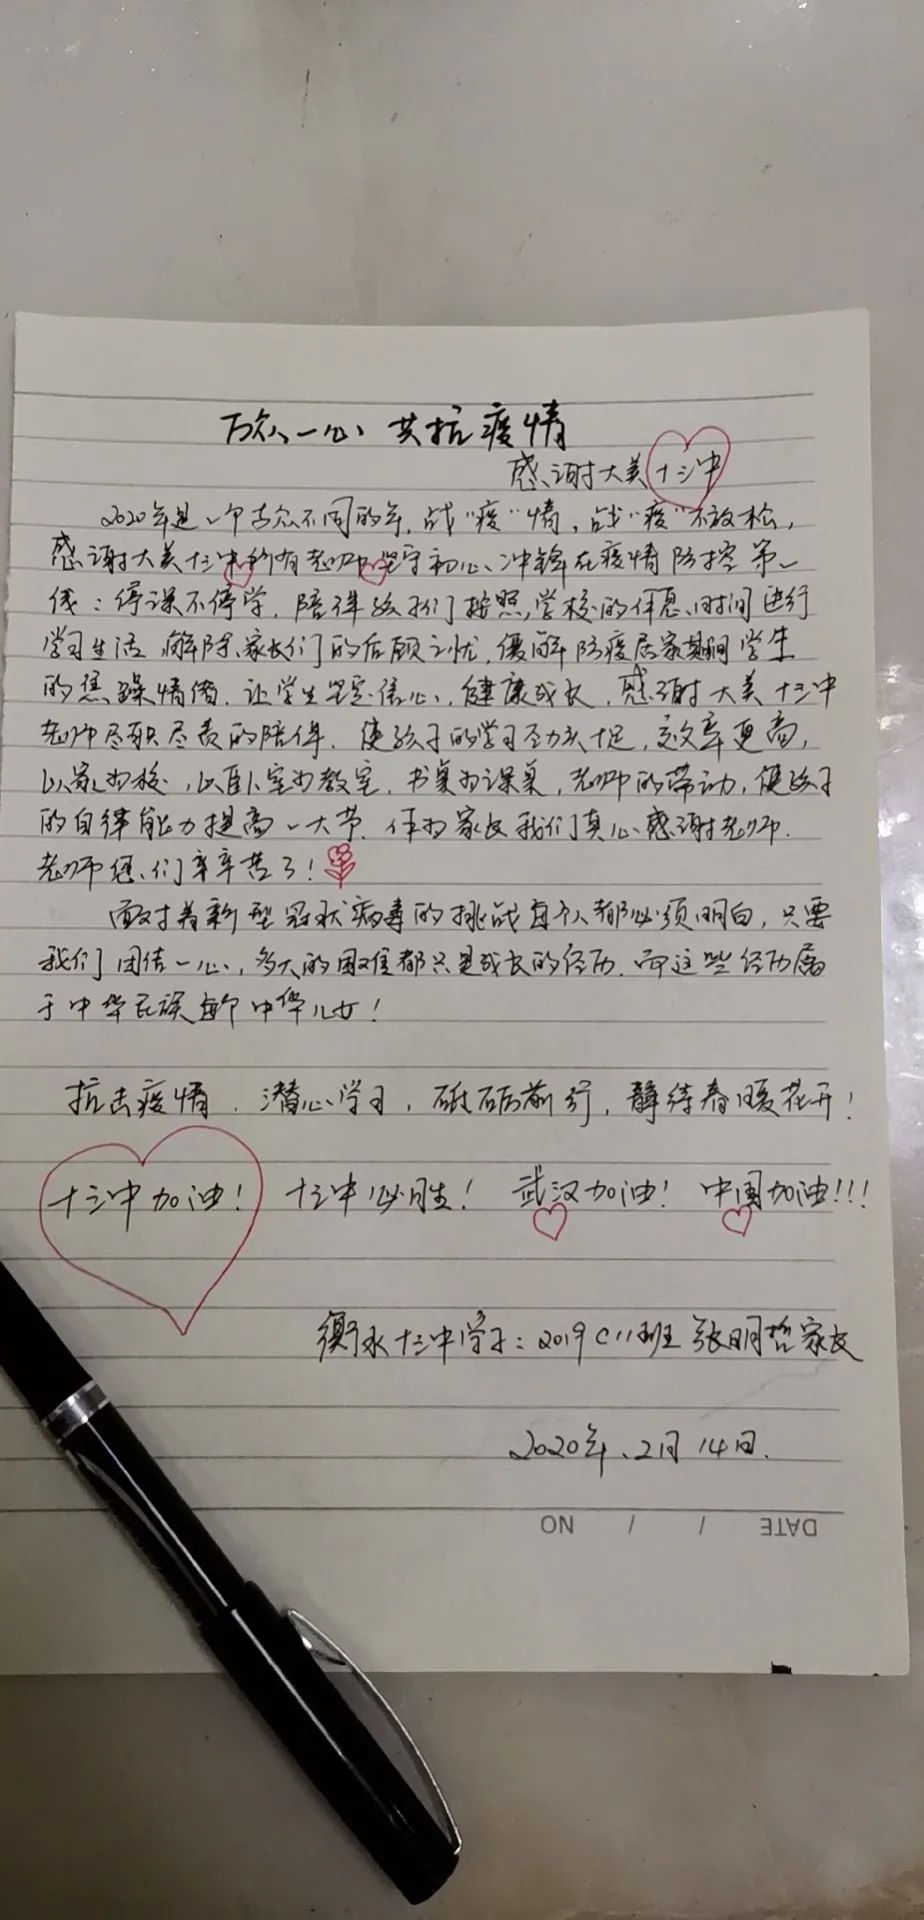 万众一心 共抗疫情
感谢大美十三中
2020年是一个与众不同的年，战“疫”情，战“疫”不放松，
感谢大美十三中所有老师坚守初心、冲锋在疫情防控第一
线：停课不停学，陪伴孩子们按照学校的作息时间进行
学习生活，解除家长们的后顾之忧，缓解防疫居家期间学生
的焦躁情绪，让学生坚定信心，健康成长，感谢大美十三中
老师尽职尽责的陪伴，使孩子的学习动力十足，效率更高，
以家为校，以卧室为教室，书桌为课桌，老师的带动，使孩子
的自律能力提高一大节．作为家长我们真心感谢老师．
老师您们辛辛苦了！
面对着新型冠状病毒的挑战每个人都必须明白，只要
我们团结一心，多大的困难都只是成长的经历．而这些经历属
于中华民族每个中华儿女！
抗击疫情．潜心学习，砥砺前行，静待春暖花开！
十三中加油！ 十三中必胜！ 武汉加油！ 中国加油！！！
衡水十三中学子：2019C11班 张明哲家长
2020年．2月14日．
DATE / / NO